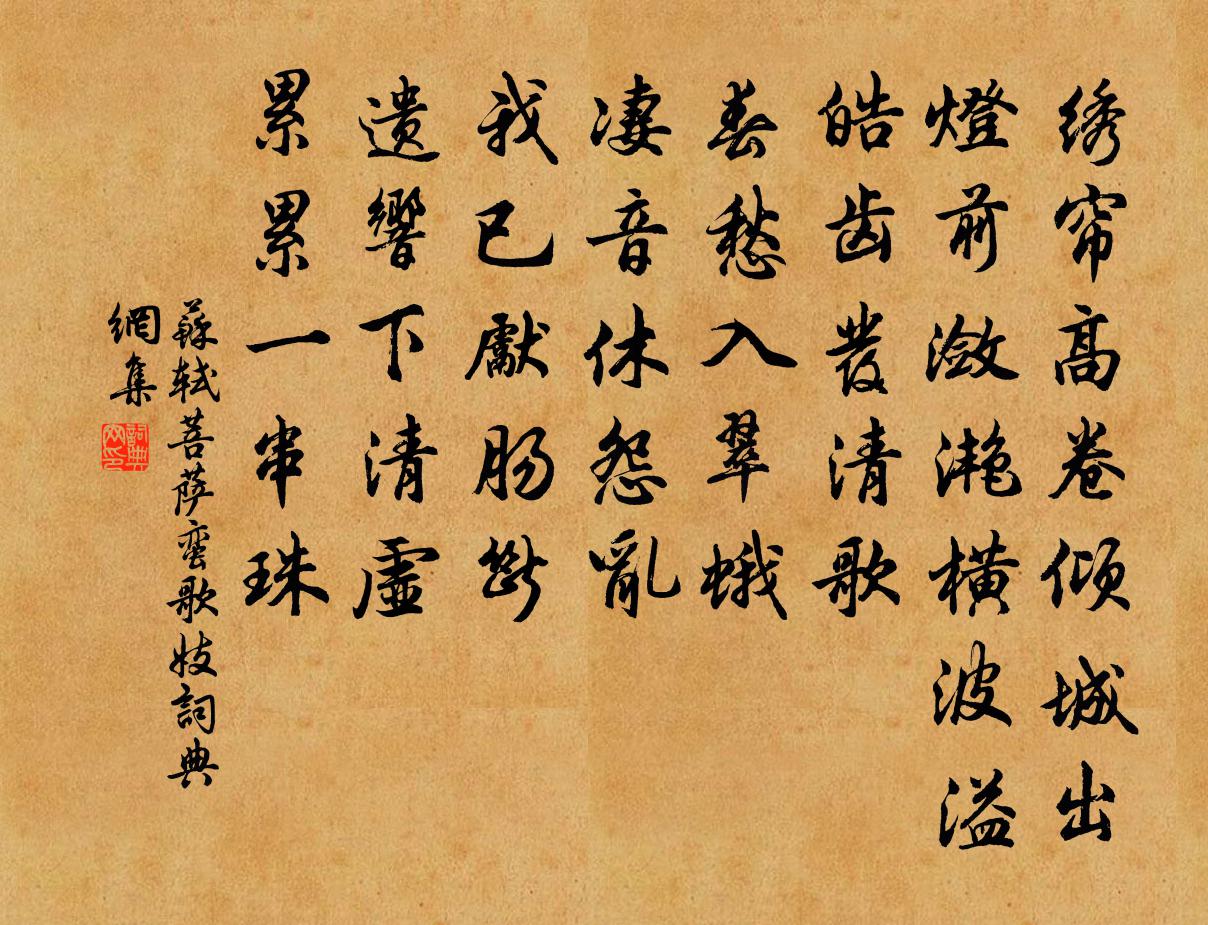 绣帘高卷倾城出
燈前潋滟横波溢
皓齿發清歌
春愁入翠蛾
凄音休怨亂
我已獻肠斷
遗響下清虚
累累一串珠
蘇轼菩萨蛮歌妓詞典
網集
詞典网印